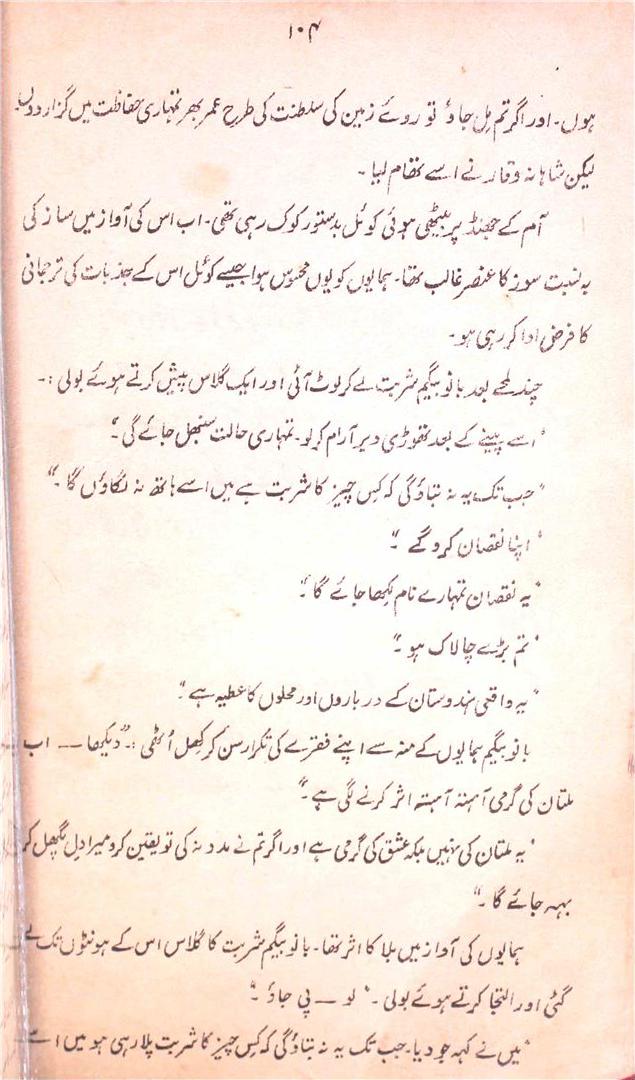 ۱۰۴
ہوں۔ اور اگر تم مل جاؤ تو روئے زمین کی سلطنت کی طرح عمر بھر تمہاری حفاظت میں گزار دوں۔
لیکن شاہانہ وقار نے اسے تھام لیا۔
آم کے جھنڈ پر بیٹھی ہوئی کوئل بدستور کوک رہی تھی۔ اب اس کی آواز میں ساز کی
بہ نسبت سوز کا عنصر غالب تھا۔ ہمایوں کو یوں محسوس ہوا جیسے کوئل اس کے جذبات کی ترجمانی
کا فرض ادا کر رہی ہو۔
چند لمحے بعد بانو بیگم شربت لے کر لوٹ آئی اور ایک گلاس پیش کرتے ہوئے بولی :۔
"اسے پینے کے بعد تھوڑی دیر آرام کر لو۔ تمہاری حالت سنبھل جائے گی"
"جب تک یہ نہ بتاؤ گی کہ کس چیز کا شربت ہے میں اسے ہاتھ نہ لگاؤں گا۔"
"اپنا نقصان کرو گے۔"
"یہ نقصان تمہارے نام لکھا جائے گا۔"
"تم بڑے چالاک ہو۔"
"یہ واقعی ہندوستان کے درباروں اور محلوں کا عطیہ ہے۔"
بانو بیگم ہمایوں کے منہ سے اپنے فقرے کی تکرار سن کر کھل اُٹھی :۔ "دیکھا — اب
ملتان کی گرمی آہستہ آہستہ اثر کرنے لگی ہے۔"
"یہ ملتان کی نہیں بلکہ عشق کی گرمی ہے اور اگر تم نے مدد نہ کی تو یقین کرو میرا دل پگھل کر
بہہ جائے گا۔"
ہمایوں کی آواز میں بلا کا اثر تھا۔ بانو بیگم شربت کا گلاس اس کے ہونٹوں تک لے
گئی اور التجا کرتے ہوئے بولی۔ "لو — پی جاؤ۔"
"میں نے کہہ جو دیا۔ جب تک یہ نہ بتاؤ گی کہ کس چیز کا شربت پلا رہی ہو میں اسے